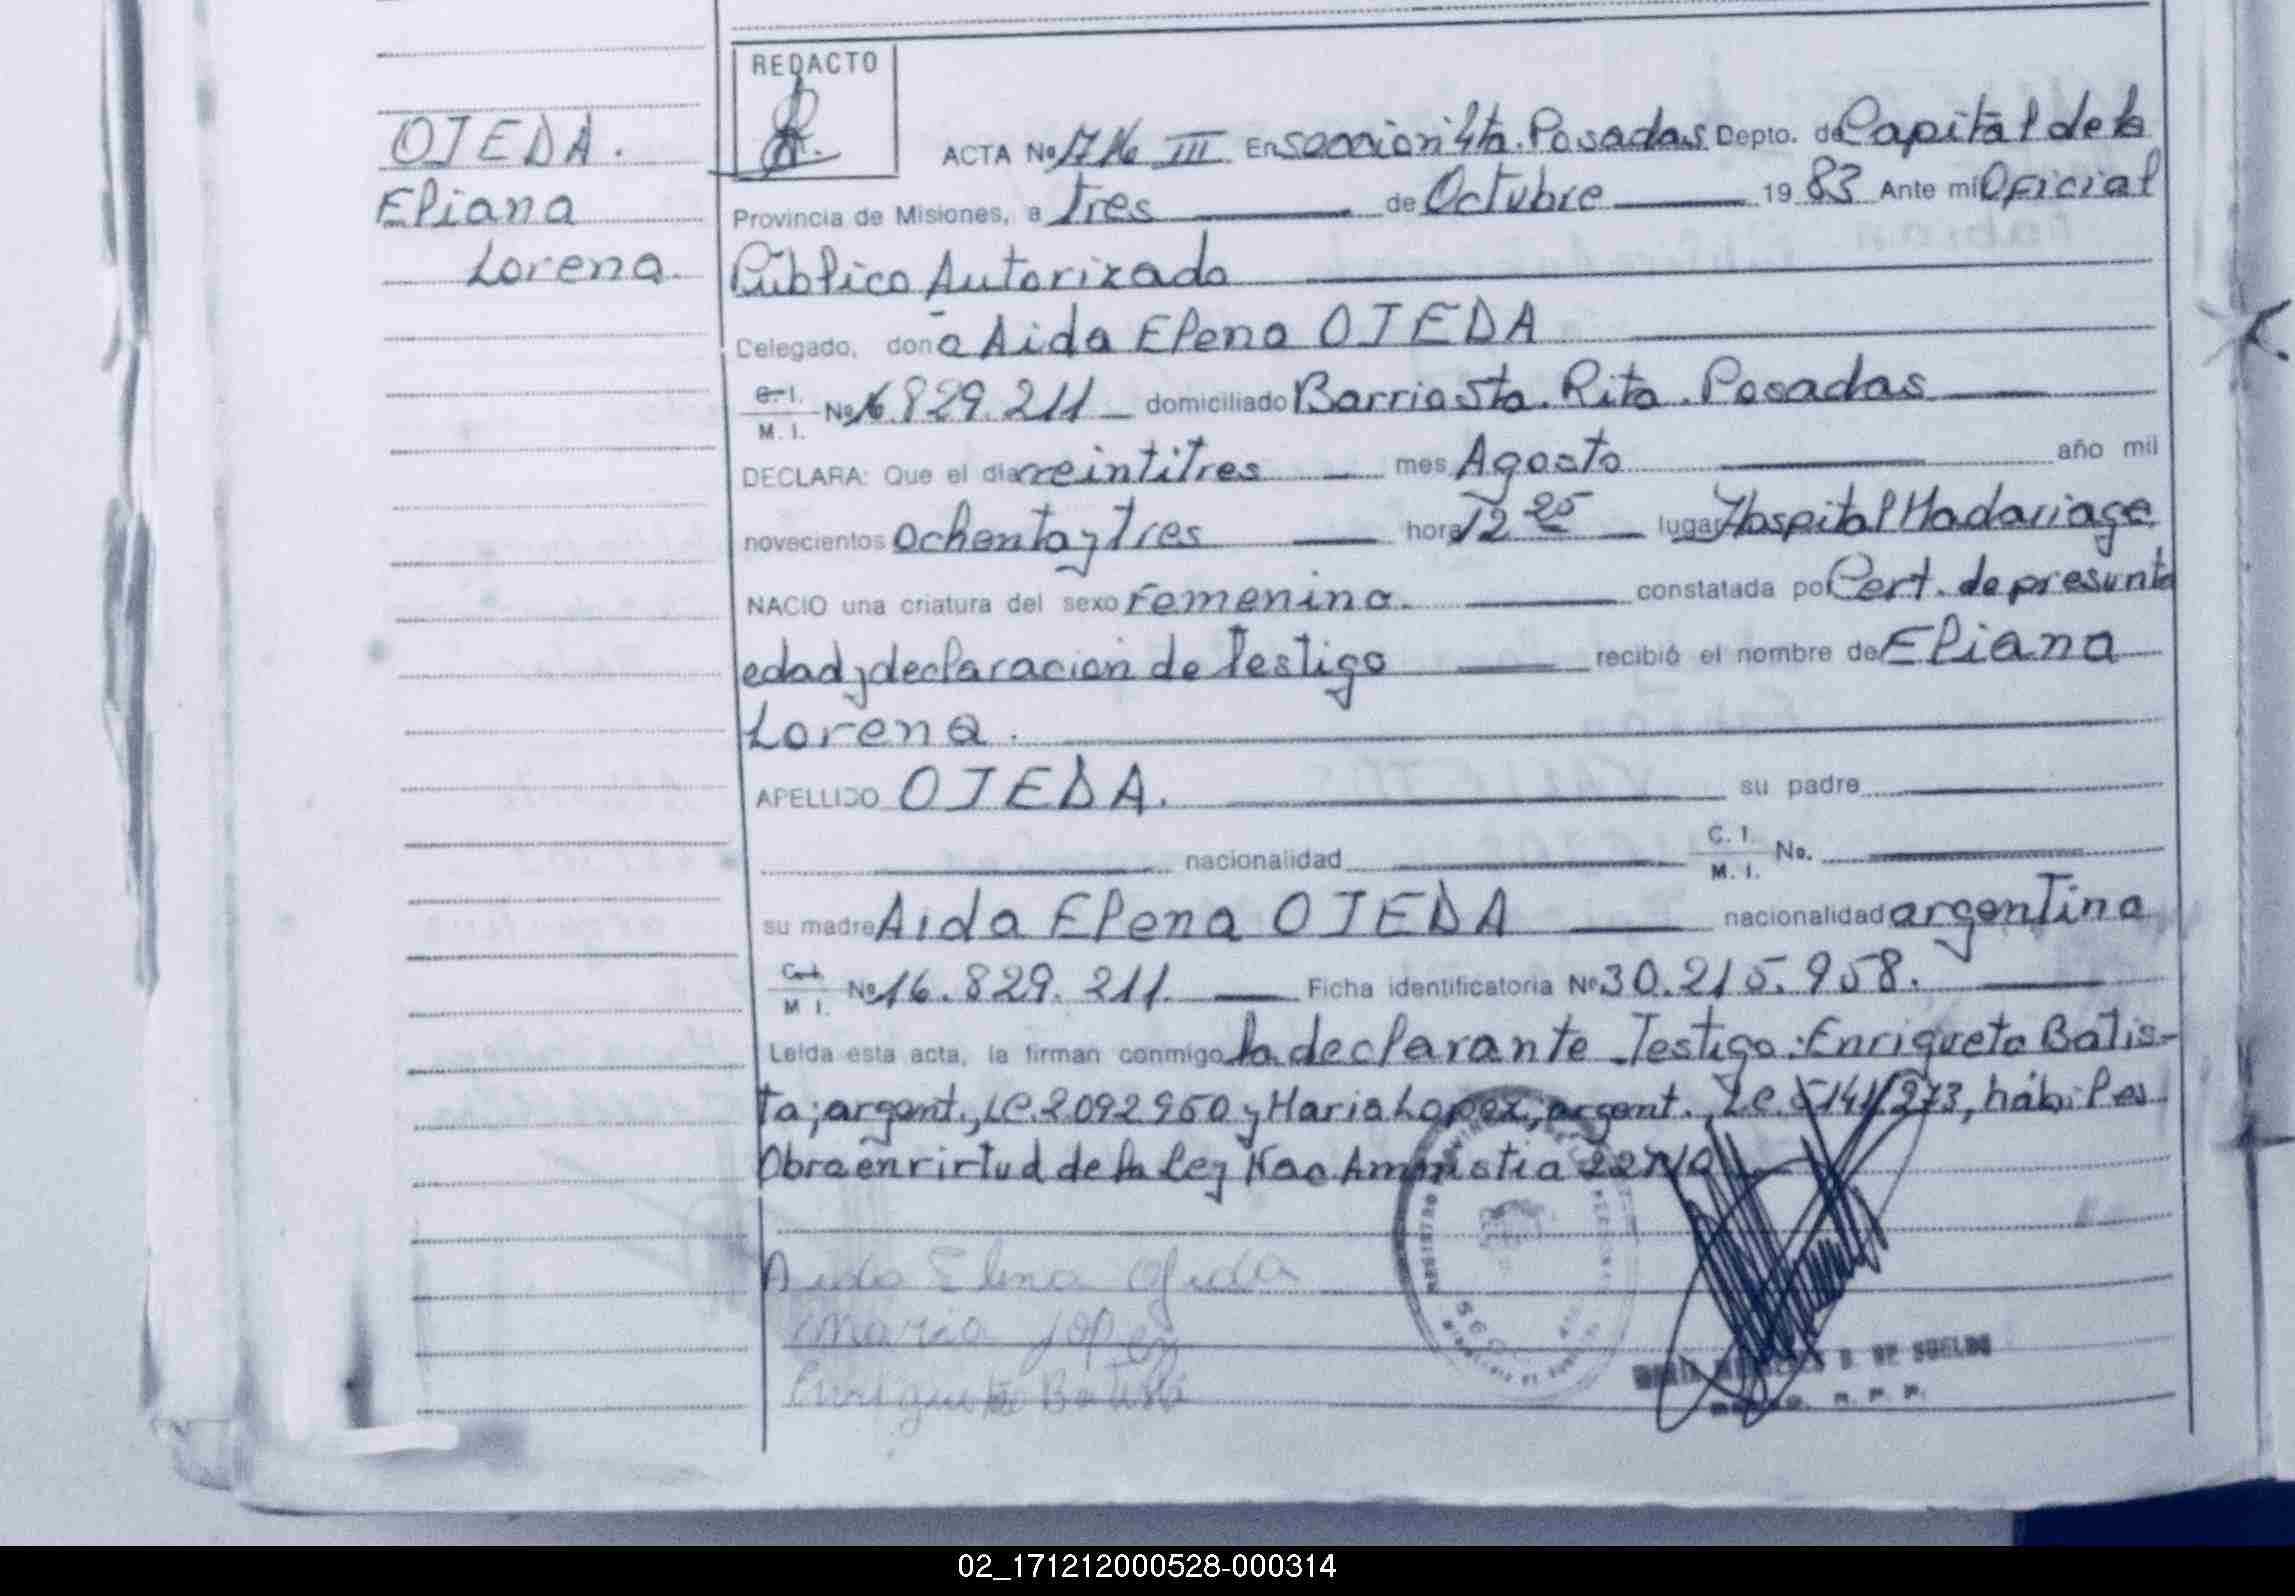 OJEDA.
Eliana
Lorena.
REDACTO
ACTA Nº III En sección 4ta. Posadas Depto. de Capital de la
Provincia de Misiones, a Tres de Octubre 1983 Ante mí Oficial
Público Autorizado
Delegado, doña Aida Elena OJEDA
C. I. M. I. Nº 16.829.211 domiciliado Barrio Sta. Rita. Posadas
DECLARA: Que el día veintitres mes Agosto año mil
novecientos ochenta y tres hora 12 25 lugar Hospital Madariaga
NACIO una criatura del sexo Femenino. constatada por Cert. de presunta
edad y declaración de Testigo recibió el nombre de Eliana
Lorena.
APELLIDO OJEDA. su padre
nacionalidad C. I. M. I. No.
su madre Aida Elena OJEDA nacionalidad argentina
C. I. M. I. Nº 16.829.211. Ficha identificatoria Nº 30.215.958.
Leída esta acta, la firman conmigo la declarante Testigo: Enriqueta Batis-
ta; argent., LC. 2092950 y Maria Lopez, argent. LC. hábiles
Obra en virtud de la Ley Nac Amnistia
Aida Elena Ojeda
Maria Lopez
Enriqueta Batista
D. DE SUELDO
02_171212000528-000314